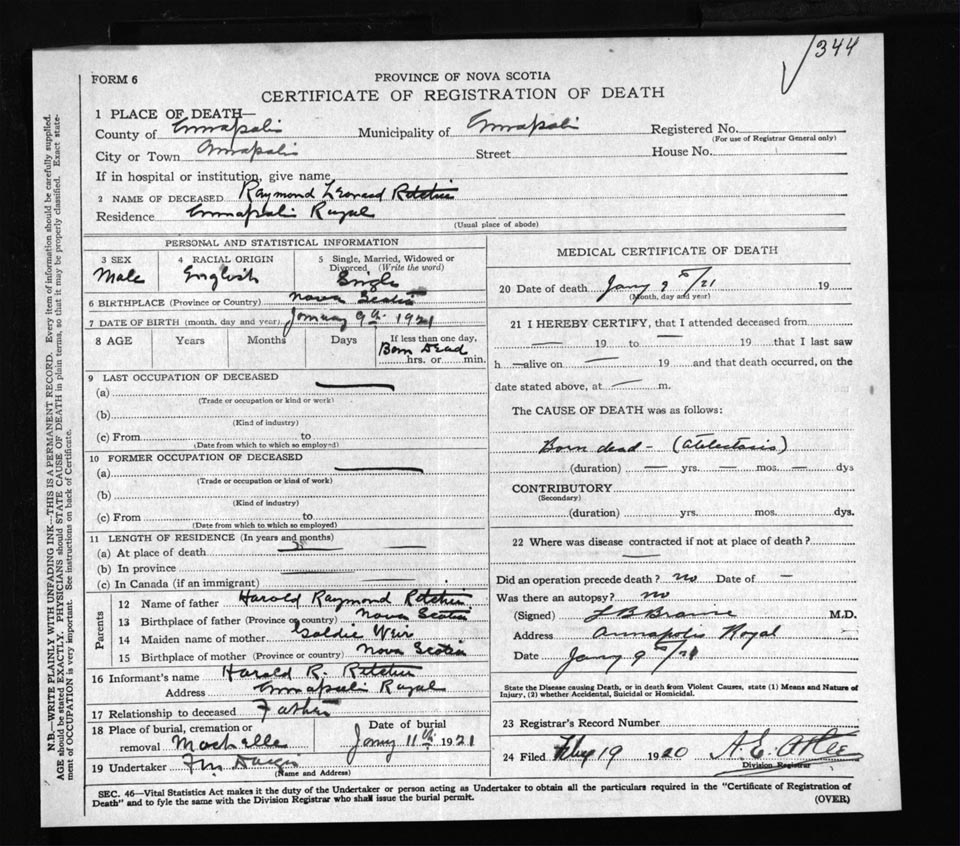 344
FORM 6
PROVINCE OF NOVA SCOTIA
CERTIFICATE OF REGISTRATION OF DEATH
1 PLACE OF DEATH—
County of Annapolis Municipality of Annapolis Registered No.
(For use of Registrar General only)
City or Town Annapolis Street House No.
If in hospital or institution, give name
2 NAME OF DECEASED Raymond Leonard Ritchie
Residence Annapolis Royal
(Usual place of abode)
PERSONAL AND STATISTICAL INFORMATION
3 SEX
Male
4 RACIAL ORIGIN
English
5 Single, Married, Widowed or
Divorced (Write the word)
Single
6 BIRTHPLACE (Province or Country) Nova Scotia
7 DATE OF BIRTH (month, day and year) January 9th 1921
8 AGE Years Months Days If less than one day,
Born Dead
hrs. or min.
9 LAST OCCUPATION OF DECEASED
(a) —
(Trade or occupation or kind or work)
(b)
(Kind of industry)
(c) From to
(Date from which to which so employed)
10 FORMER OCCUPATION OF DECEASED
(a) —
(Trade or occupation or kind of work)
(b)
(Kind of industry)
(c) From to
(Date from which to which so employed)
11 LENGTH OF RESIDENCE (In years and months)
(a) At place of death
(b) In province
(c) In Canada (if an immigrant)
Parents
12 Name of father Harold Raymond Ritchie
13 Birthplace of father (Province or country) Nova Scotia
14 Maiden name of mother Goldie Weir
15 Birthplace of mother (Province or country) Nova Scotia
16 Informant's name Harold R. Ritchie
Address Annapolis Royal
17 Relationship to deceased Father
18 Place of burial, cremation or
removal
Date of burial
Jany 11th 1921
19 Undertaker
(Name and Address)
MEDICAL CERTIFICATE OF DEATH
20 Date of death Jany 9th/21 19
(Month, day and year)
21 I HEREBY CERTIFY, that I attended deceased from
— 19 to — 19 that I last saw
h — alive on — 19 and that death occurred, on the
date stated above, at — m.
The CAUSE OF DEATH was as follows:
Born dead — (Atelectasis)
(duration) — yrs. — mos. — dys
CONTRIBUTORY
(Secondary)
(duration) yrs. mos. dys.
22 Where was disease contracted if not at place of death?
—
Did an operation precede death? no Date of —
Was there an autopsy? no
(Signed) M.D.
Address Annapolis Royal
Date Jany 9th/21
State the Disease causing Death, or in death from Violent Causes, state (1) Means and Nature of
Injury, (2) whether Accidental, Suicidal or Homicidal.
23 Registrar's Record Number
24 Filed 19 1920 A. E. Atlee
Division Registrar
SEC. 46—Vital Statistics Act makes it the duty of the Undertaker or person acting as Undertaker to obtain all the particulars required in the "Certificate of Registration of
Death" and to fyle the same with the Division Registrar who shall issue the burial permit.
(OVER)
N.B.—WRITE PLAINLY WITH UNFADING INK—THIS IS A PERMANENT RECORD. Every item of information should be carefully supplied.
AGE should be stated EXACTLY. PHYSICIANS should STATE CAUSE OF DEATH in plain terms, so that it may be properly classified. Exact state-
ment of OCCUPATION is very important. See instructions on back of Certificate.